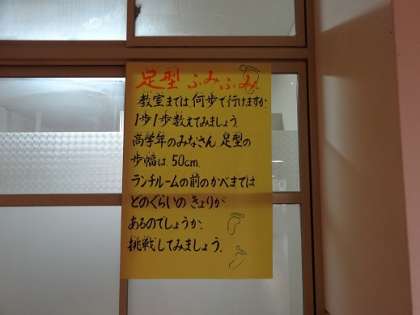 足型 ふみふみ
教室までは 何歩で行けますか
1歩1歩数えてみましょう
高学年のみなさん 足型の
歩幅は 50cm.
ランチルームの前のかべまでは
どのくらいの きょりが
あるのでしょうか.
挑戦してみましょう.